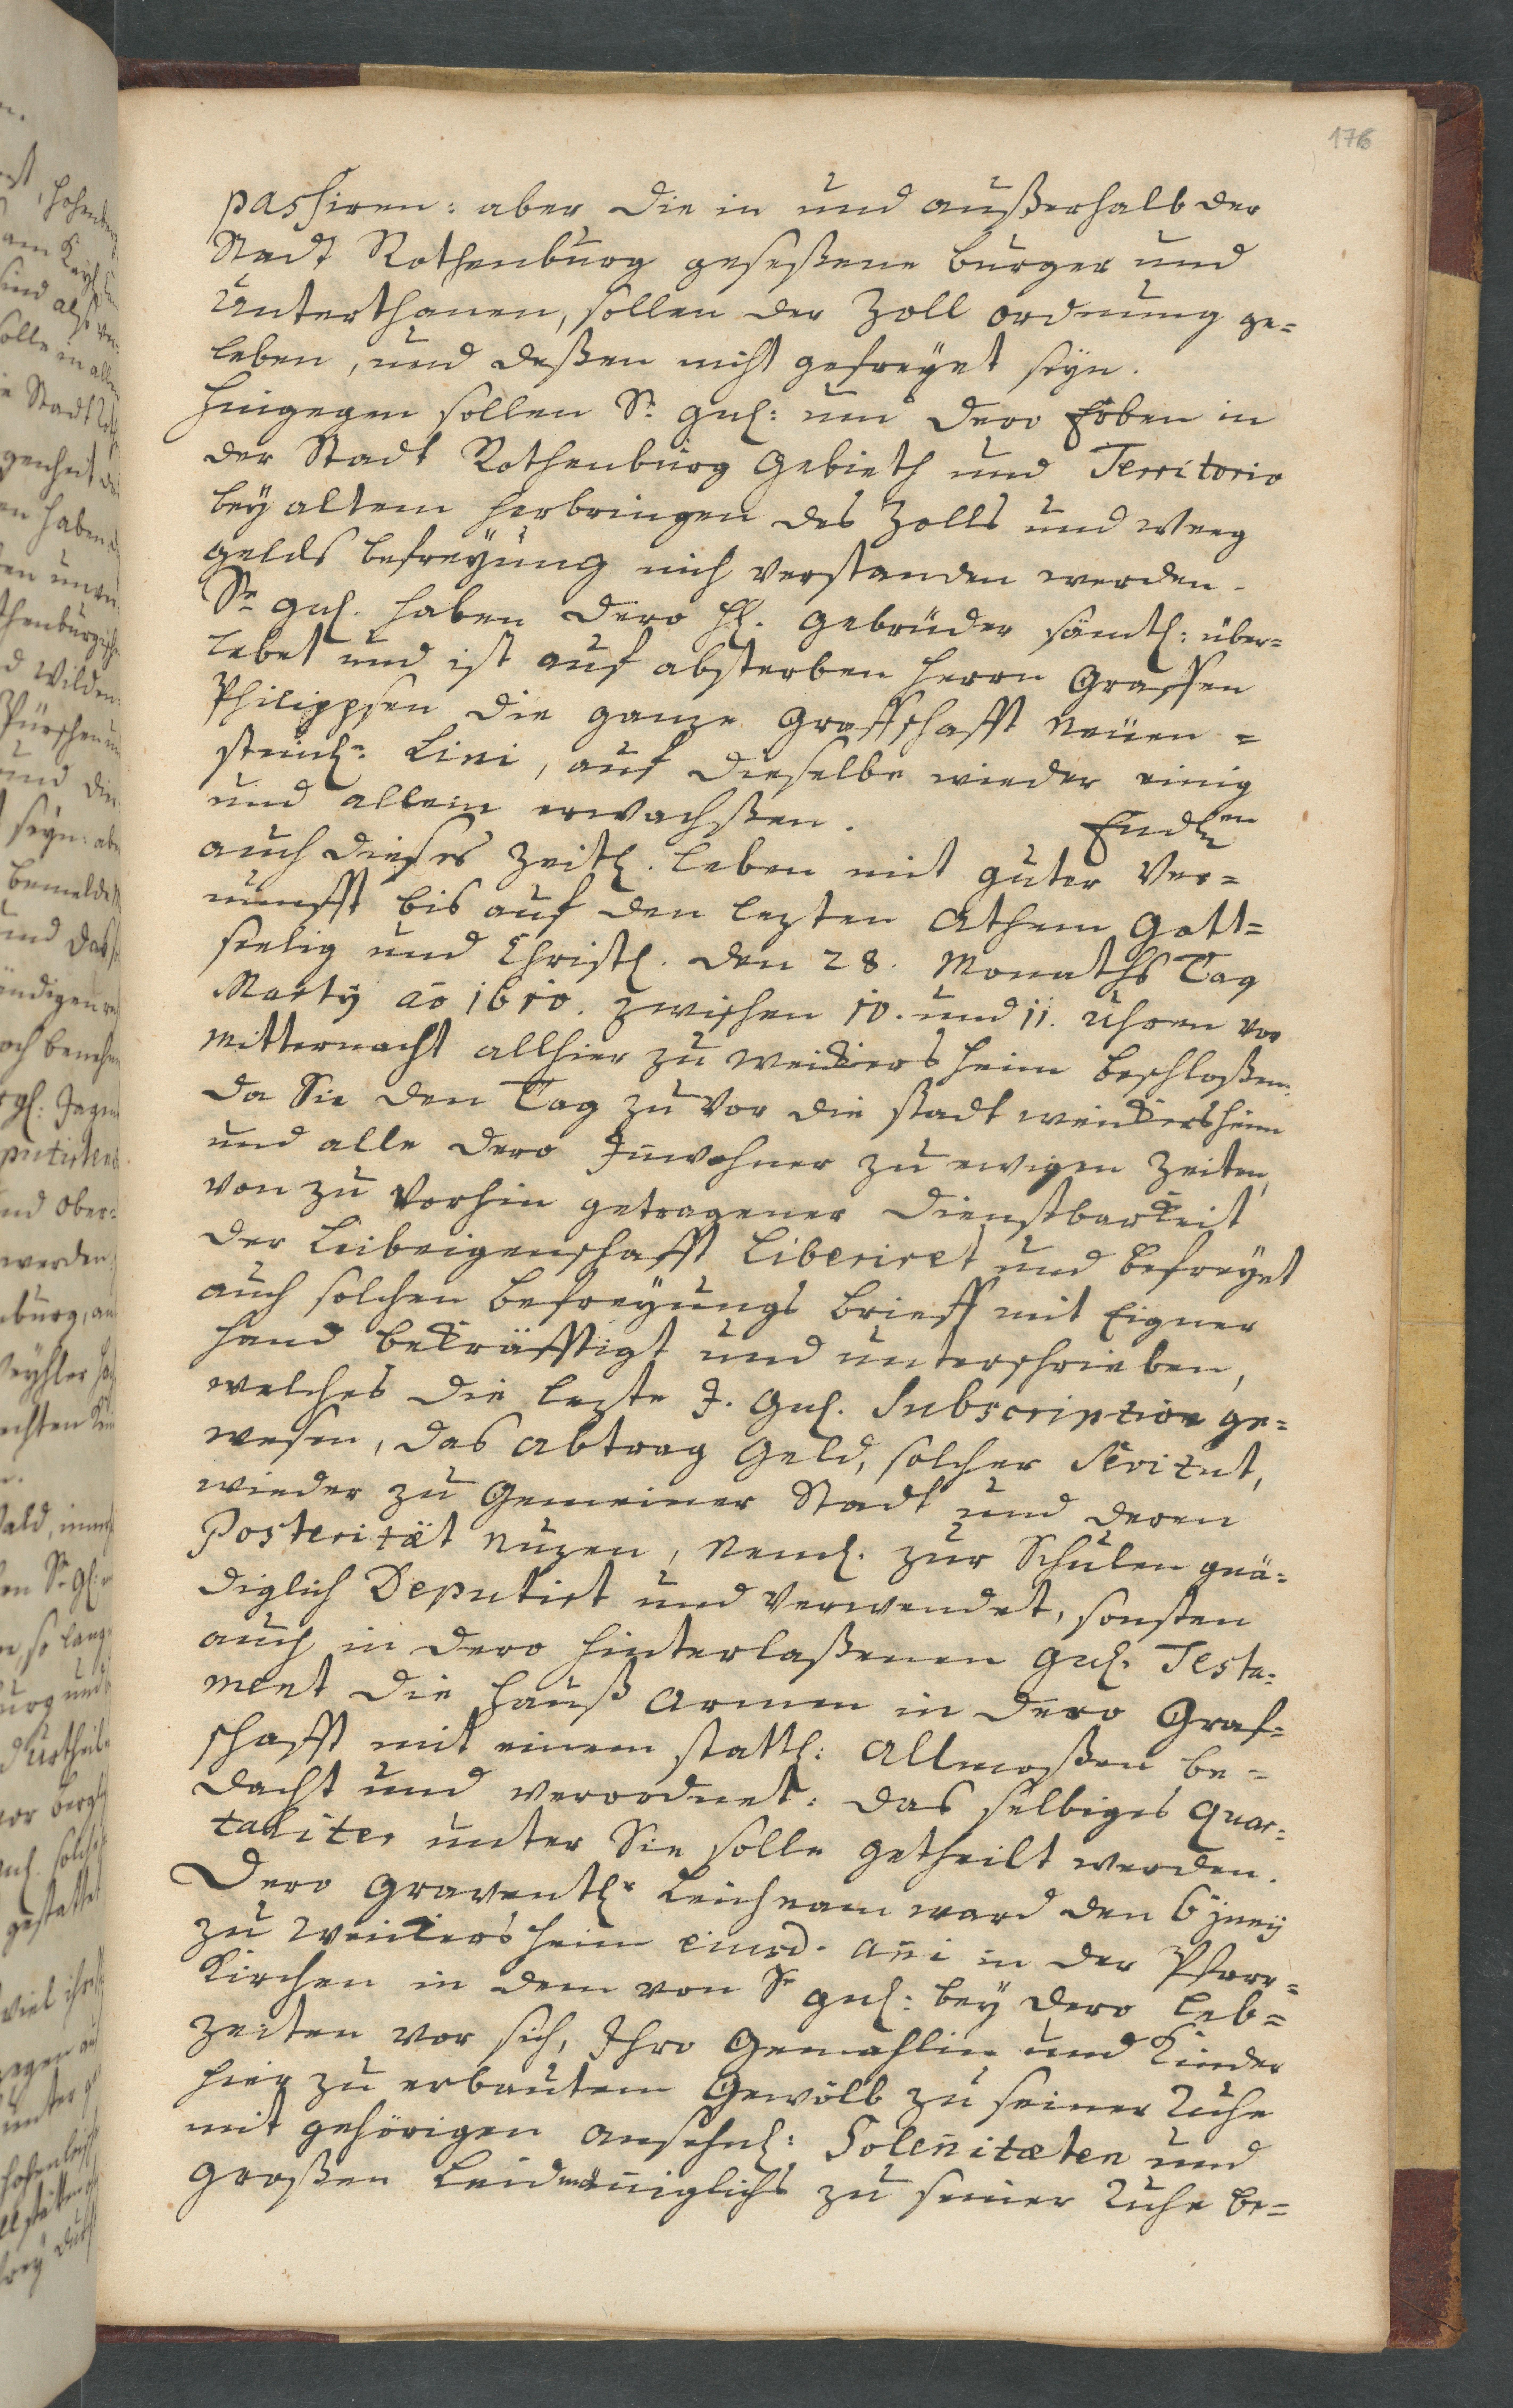 176
passiren: aber die in und außerhalb der
Stadt Rothenburg geseßene burger und
Unterthanen, sollen der Zoll ordnung ge=
leben, und deßen nicht gefreyet seyn.
Hingegen sollen Sr. gnl: und dero Erben in
der Stadt Rothenburg Gebieth und Territorio
bey altem herbringen des Zolls und Weeg
gelds befreyung mich verstanden werden.
Sr gnl. haben dero HH. Gebrüder sämtl: über=
lebet und ist auf absterben Herrn Graffen
Philippsen die ganze Graffschafft Neüen=
steinl: Lini, auf dieselbe wieder einig
und allein erwachßen. Endlen
auch dieses Zeitl. leben mit guter Ver=
nunfft bis auf den lezten Athem Gott=
seelig und Christl. den 28. Monaths Tag
Marty ao 1610. zwischen 10. und 11. Uhren vor
Mitternacht allhier zu Weickersheim beschloßen:
da Sie den Tag zu vor die Stadt Weickersheim
und alle dero Jnwohner zu ewigen Zeiten,
von zu vorhin getragener Dienstbarkeit
der Leibeigenschafft Liberiret und befreyet
auch solchen befreyungs brieff mit Eigner
Hand bekräfftigt und unterschrieben,
welches die lezte J. Gnl. Subscription ge=
wesen, das Abtrag Geld, solcher Servitut,
wieder zu Gemeiner Stadt und deren
Posterität Nuzen, Neml. zur Schulen gnä=
diglich Deputirt und verwendet, sonsten
auch in dero hinterlaßenen gnl. Testa=
ment die Hauß Armen in dero Graf=
schafft mit einem stattl: Allmoßen be=
dacht und verordnet: das selbiges Quar=
taliter unter Sie solle getheilt werden.
Dero Leichnam ward den 6 Juny
zu Weickersheim eiusd. añi in der Pfarr=
Kirchen in dem von Sr gnl: bey dero Leb=
zeiten vor sich, Jhro Gemahlin und Kinder
hierzu erbautem Gewölb zu seiner Ruhe
mit gehörigen ansehnl: Soleñitaeten und
großen Leid mäniglichs zu seiner Ruhe be=